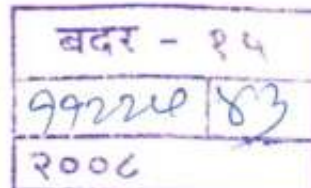 बदर - १५
११२२५ ४३
२००८